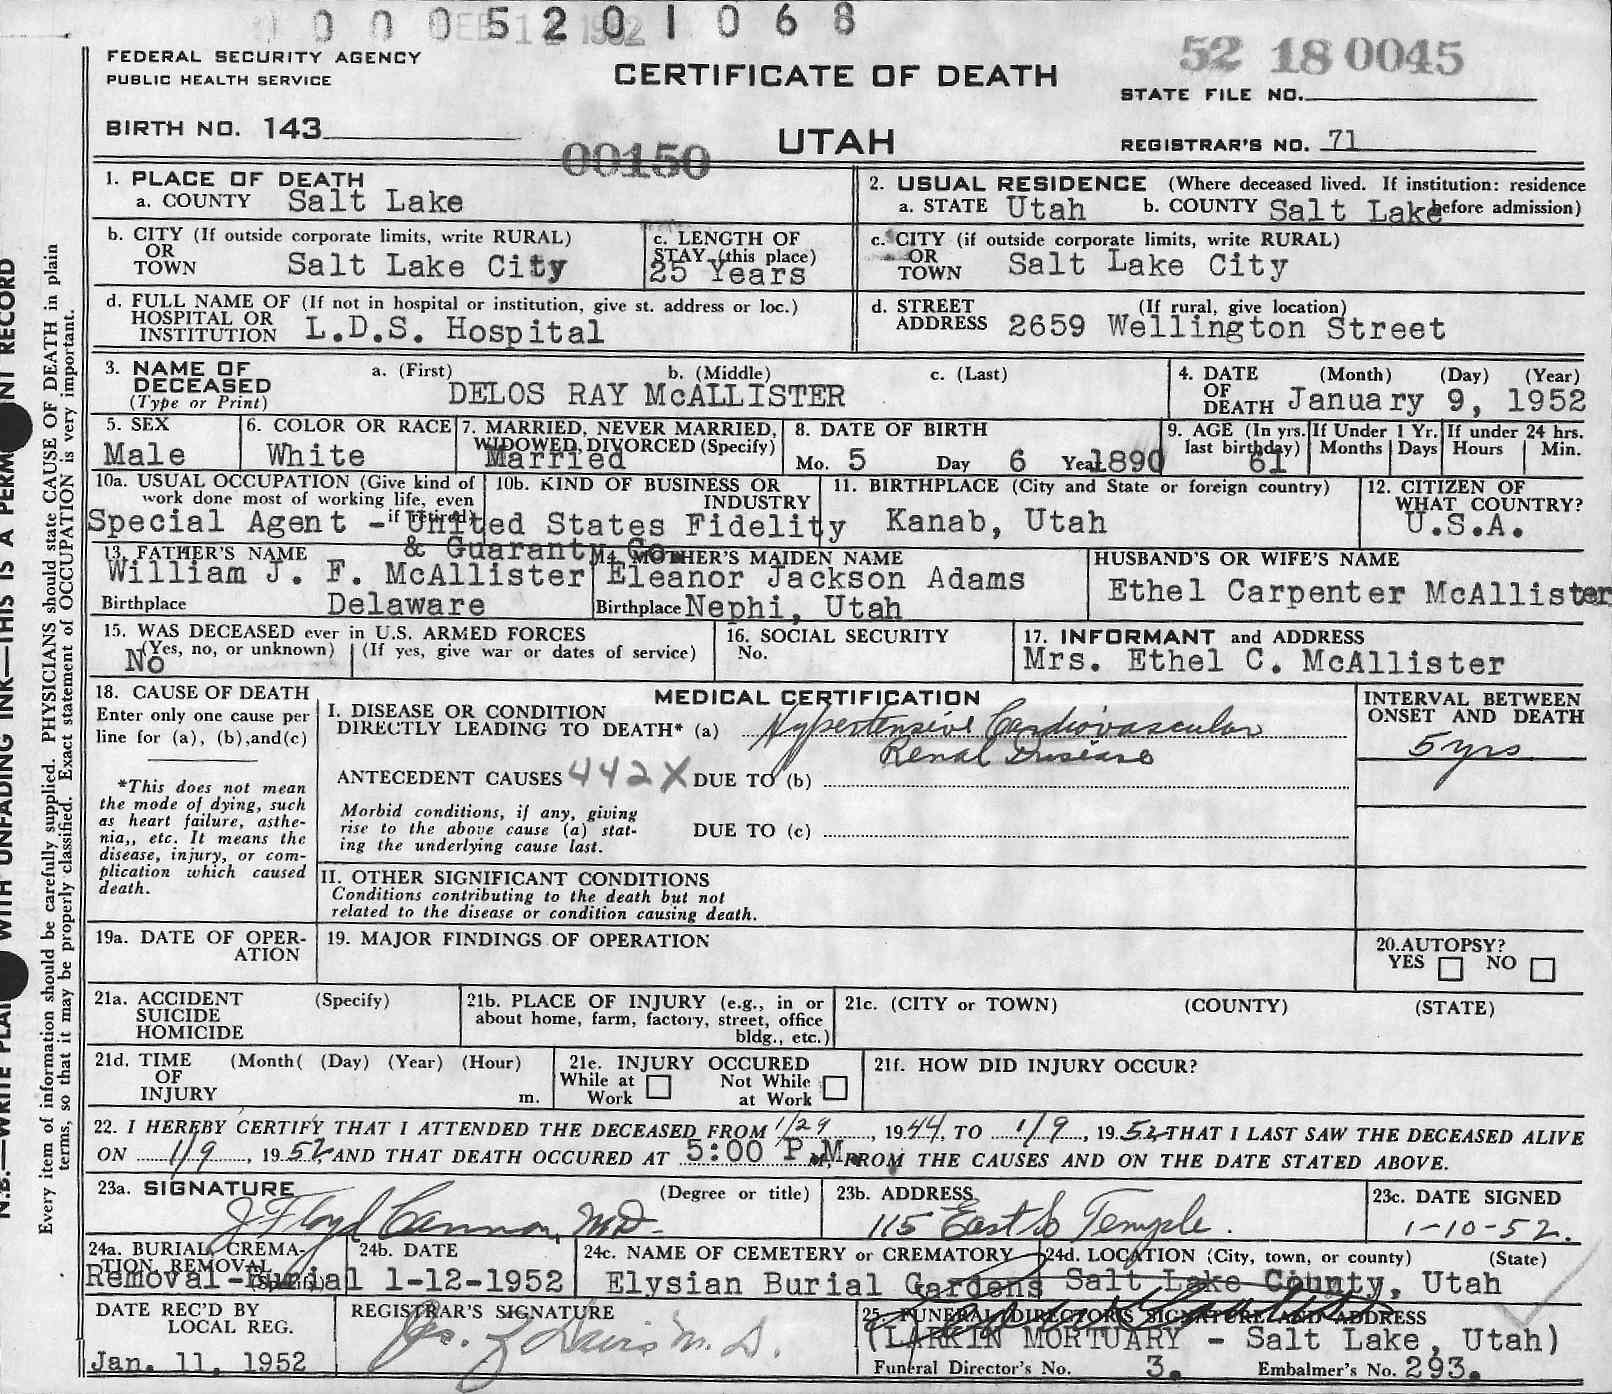 0 0 0 5 2 0 1 0 6 8
FEDERAL SECURITY AGENCY
PUBLIC HEALTH SERVICE
CERTIFICATE OF DEATH
52 18 0045
STATE FILE NO.
BIRTH NO. 143
UTAH
REGISTRAR'S NO. 71
00150
1. PLACE OF DEATH
a. COUNTY Salt Lake
2. USUAL RESIDENCE (Where deceased lived. If institution: residence before admission)
a. STATE Utah b. COUNTY Salt Lake
b. CITY (If outside corporate limits, write RURAL)
OR
TOWN Salt Lake City
c. LENGTH OF
STAY (this place)
25 Years
c. CITY (if outside corporate limits, write RURAL)
OR
TOWN Salt Lake City
d. FULL NAME OF (If not in hospital or institution, give st. address or loc.)
HOSPITAL OR
INSTITUTION L.D.S. Hospital
d. STREET (If rural, give location)
ADDRESS 2659 Wellington Street
3. NAME OF
DECEASED
(Type or Print)
a. (First) b. (Middle) c. (Last)
DELOS RAY McALLISTER
4. DATE (Month) (Day) (Year)
OF
DEATH January 9, 1952
5. SEX
Male
6. COLOR OR RACE
White
7. MARRIED, NEVER MARRIED,
WIDOWED, DIVORCED (Specify)
Married
8. DATE OF BIRTH
Mo. 5 Day 6 Year 1890
9. AGE (In yrs. last birthday) 61
If Under 1 Yr. Months Days
If under 24 hrs. Hours Min.
10a. USUAL OCCUPATION (Give kind of
work done most of working life, even
if retired)
10b. KIND OF BUSINESS OR
INDUSTRY
Special Agent - United States Fidelity
& Guaranty Co.
11. BIRTHPLACE (City and State or foreign country)
Kanab, Utah
12. CITIZEN OF
WHAT COUNTRY?
U.S.A.
13. FATHER'S NAME
William J. F. McAllister
Birthplace Delaware
14. MOTHER'S MAIDEN NAME
Eleanor Jackson Adams
Birthplace Nephi, Utah
HUSBAND'S OR WIFE'S NAME
Ethel Carpenter McAllister
15. WAS DECEASED ever in U.S. ARMED FORCES
(Yes, no, or unknown) (If yes, give war or dates of service)
No
16. SOCIAL SECURITY
No.
17. INFORMANT and ADDRESS
Mrs. Ethel C. McAllister
18. CAUSE OF DEATH
Enter only one cause per
line for (a), (b), and (c)
*This does not mean
the mode of dying, such
as heart failure, asthe-
nia,, etc. It means the
disease, injury, or com-
plication which caused
death.
MEDICAL CERTIFICATION
I. DISEASE OR CONDITION
DIRECTLY LEADING TO DEATH* (a) Hypertensive Cardiovascular
Renal Disease
ANTECEDENT CAUSES 442X DUE TO (b)
Morbid conditions, if any, giving
rise to the above cause (a) stat-
ing the underlying cause last.
DUE TO (c)
INTERVAL BETWEEN
ONSET AND DEATH
5 yrs
II. OTHER SIGNIFICANT CONDITIONS
Conditions contributing to the death but not
related to the disease or condition causing death.
19a. DATE OF OPER-
ATION
19. MAJOR FINDINGS OF OPERATION
20. AUTOPSY?
YES NO
21a. ACCIDENT (Specify)
SUICIDE
HOMICIDE
21b. PLACE OF INJURY (e.g., in or
about home, farm, factory, street, office
bldg., etc.)
21c. (CITY or TOWN) (COUNTY) (STATE)
21d. TIME (Month( (Day) (Year) (Hour)
OF
INJURY m.
21e. INJURY OCCURED
While at Work Not While at Work
21f. HOW DID INJURY OCCUR?
22. I HEREBY CERTIFY THAT I ATTENDED THE DECEASED FROM 1/29, 1944, TO 1/9, 1952 THAT I LAST SAW THE DECEASED ALIVE
ON 1/9, 1952, AND THAT DEATH OCCURED AT 5:00 P.M. M, FROM THE CAUSES AND ON THE DATE STATED ABOVE.
23a. SIGNATURE (Degree or title)
J Floyd Cannon, MD.
23b. ADDRESS
115 East So Temple.
23c. DATE SIGNED
1-10-52.
24a. BURIAL, CREMA-
TION REMOVAL
(Specify)
Removal-Burial
24b. DATE
1-12-1952
24c. NAME OF CEMETERY or CREMATORY
Elysian Burial Gardens
24d. LOCATION (City, town, or county) (State)
Salt Lake County, Utah
DATE REC'D BY
LOCAL REG.
Jan. 11, 1952
REGISTRAR'S SIGNATURE
Davis M.D.
25. FUNERAL DIRECTORS SIGNATURE AND ADDRESS
(LARKIN MORTUARY - Salt Lake, Utah)
Funeral Director's No. 3. Embalmer's No. 293.
N.B.—WRITE WITH UNFADING INK—THIS IS A RECORD
Every item of information should be carefully supplied. PHYSICIANS should state CAUSE OF DEATH in plain
terms, so that it may be properly classified. Exact statement of OCCUPATION is very important.